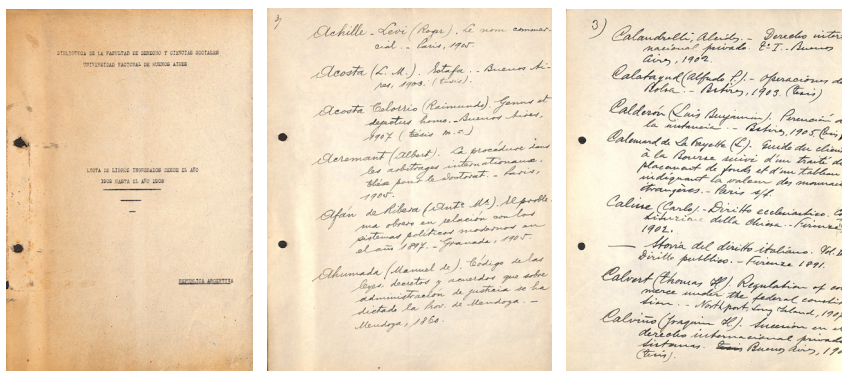 BIBLIOTECA DE LA FACULTAD DE DERECHO Y CIENCIAS SOCIALES
UNIVERSIDAD NACIONAL DE BUENOS AIRES
LISTA DE LIBROS INGRESADOS DESDE EL AÑO
HASTA EL AÑO
REPUBLICA ARGENTINA
3)
Achille-Levi (Roger). Le nom commer-
cial.- Paris, 1905.
Acosta (L. M.). Estafa.- Buenos Ai-
res, 1903. (tesis).
Acosta Celorrio (Raimundo). Genus et
homo.- Buenos Aires,
1907 (tesis m.c.)
Acremant (Albert). La procédure dans
les arbitrages internationaux.
Thèse pour le doctorat.- Paris,
1905.
Afán de Ribera (Ante Mª). El proble-
ma obrero en relación con los
sistemas políticos modernos en
el año 1897.- Granada, 1905.
Ahumada (Manuel de). Código de las
leyes, decretos y acuerdos que sobre
administración de justicia se ha
dictado la Prov. de Mendoza.-
Mendoza, 1860.
3)
Calandrelli, Alcides.- Derecho inter
nacional privado. Tº I.- Buenos
Aires, 1902.
Calatayud (Alfredo P.).- Operaciones de
Bolsa.- Bs Aires, 1903. (tesis)
Calderón (Luis Benjamin). Perención de
la instancia.- Bs Aires, 1905
Calemard de La Fayette (L). Guide du client
à la Bourse suivi d'un traité de
placement de fonds et d'un tableau
indiquant la valeur des monnaies
étrangères.- Paris s/f.
Calisse (Carlo)- Diritto ecclesiastico. Co
stituzione della Chiesa.- Firenze
1902.
— Storia del diritto italiano. Vol. II
Diritto pubblico.- Firenze 1891.
Calvert (Thomas H.) Regulation of com
merce under the federal constitu
tion.- Northport, Long Island, 1907
Calviño (Joaquin H.). Sucesión en el
derecho internacional privado
sistemas. Buenos Aires, 190
(tesis).